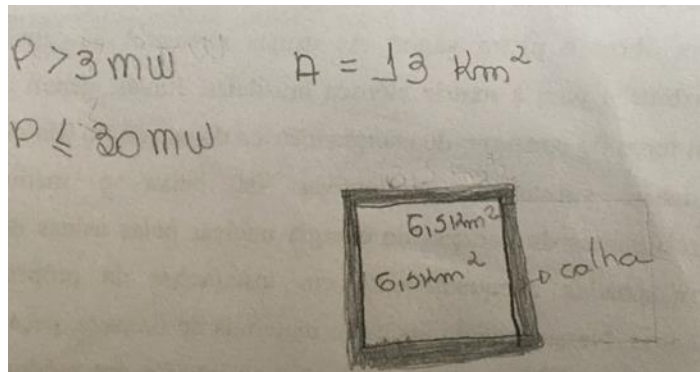 P > 3 mw A = 13 Km²
P ≤ 30 mw
6,5 Km²
6,5 Km²
calha